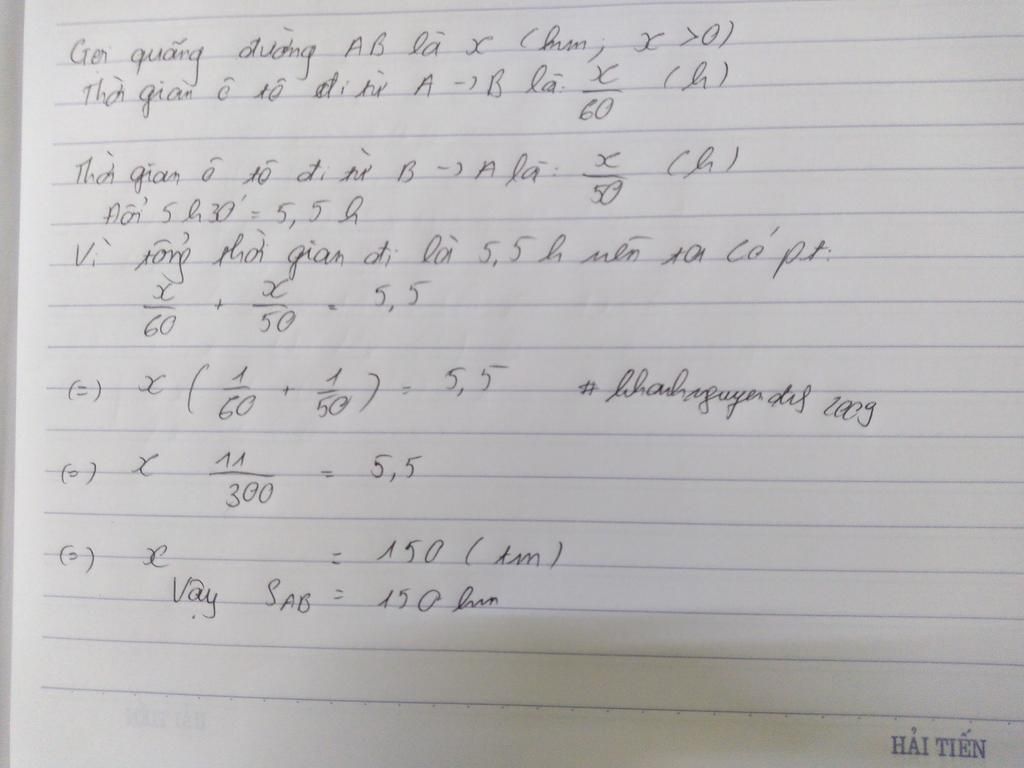 Gọi quãng đường AB là x (km; x >0)
Thời gian ô tô đi từ A → B là: x/60 (h)
Thời gian ô tô đi từ B → A là: x/50 (h)
Đổi 5h30' = 5,5 h
Vì tổng thời gian đi là 5,5 h nên ta có pt:
x/60 + x/50 = 5,5
(=) x (1/60 + 1/50) = 5,5 # khanhnguyendz 2009
(=) x 11/300 = 5,5
(=) x = 150 (tm)
Vậy S_AB = 150 km
HẢI TIẾN